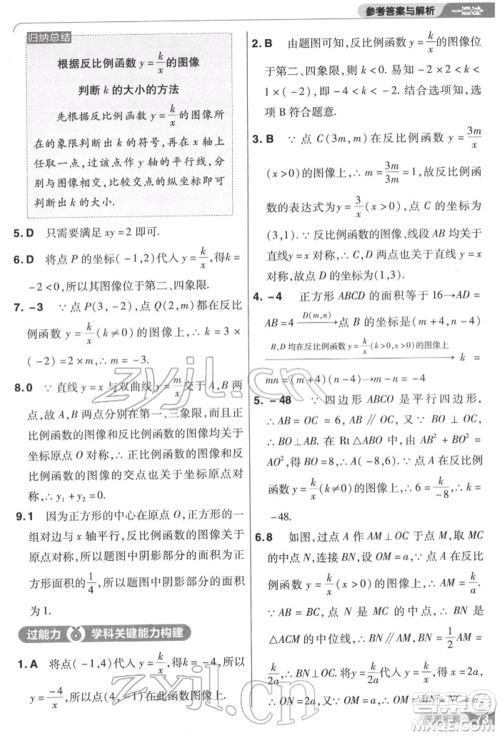 参考答案与解析
一遍过
归纳总结
根据反比例函数 y=k/x 的图像
判断 k 的大小的方法
先根据反比例函数 y=k/x 的图像所
在的象限判断出 k 的符号,再在 x 轴上
任取一点,过该点作 y 轴的平行线,分别
与图像相交,比较交点的纵坐标大小,即可
判断出 k 的大小.
5. D 只需要满足 xy=2 即可.
6. D 将点 P 的坐标(-1,2)代入函数,可得 k=
-2<0,所以图像位于第二、四象限.
7. -3 ∵点 P(3,-2),点 Q(2,m)都在反比
例函数 y=k/x(k≠0)的图像上,∴k=3×
(-2)=2×m,∴m=-3.
8. 0 ∵直线 y=x 与双曲线 y=m/x 交于 A,B
两点,∴A,B 两点分别在第一、三象限,而正
比例函数的图像和反比例函数的图像都关于
坐标原点对称,∴正比例函数的图像和反比
例函数的图像的交点也关于坐标原点对
称,∴y₁+y₂=0.
9. 1 因为正方形的中心在原点 O,正方形的一
组对边与 x 轴平行,反比例函数的图像关于
原点对称,所以题图中阴影部分的面积为正
方形面积的 1/4,所以题图中阴影部分的面积
为 1.
过能力 学科关键能力构建
1. A 将点(-1,4)代入 y=k/x,得 k=-4,所以
y=-4/x
2. B 由题图可知,反比例函数的图像位
于第二、四象限,∴k<0,且 k<
1×(-2),即 k<-2.结合选项知,选
项 B 符合题意.
3. B ∵点 C(3m,m)在反比例函数 y=3m/x
(x>0)的图像上,∴m=3m/3m=1,∴反比例函
数的表达式为 y=3/x(x>0),点 C 的坐标为
(3,1).∵反比例函数的图像、线段 AB 均关
于直线 y=x 对称,∴C,D 两点也关于直线
y=x 对称,故点 D 的坐标为(1,3).
4. -4 正方形 ABCD 的面积等于 16→AD=
AB=4 D(m,n)→ B(m+4,n-4)
B,D 均在反比例函数 y=k/x(k<0,x<0)的图像上→ k=
mn=(m+4)(n-4)→k=-4
5. -48 ∵四边形 ABCO 是平行四边形,
∴AB=OC=6.又∵OB⊥OC,∴OB⊥
AB.在 Rt△ABO 中,由 AB²+BO²=
AO²,得 BO=8,∴A(-8,6).∵点 A 在反比
例函数 y=k/x 的图像上,∴6=k/-8,∴k=
-48.
6. 8 如图,过点 A 作 AM⊥OC 于点 M,过
点 B 作 BN⊥OC 于点 N.设 OM=a,则 AM=
k/a.∵AC=2BC,∴AB=BC.∵AM⊥OC,
BN⊥OC,∴BN∥AM,∴BN 是
△ACM 的中位线,∴BN=1/2AM=
k/2a,NM=NC.又点 B 在反比例函数 y=